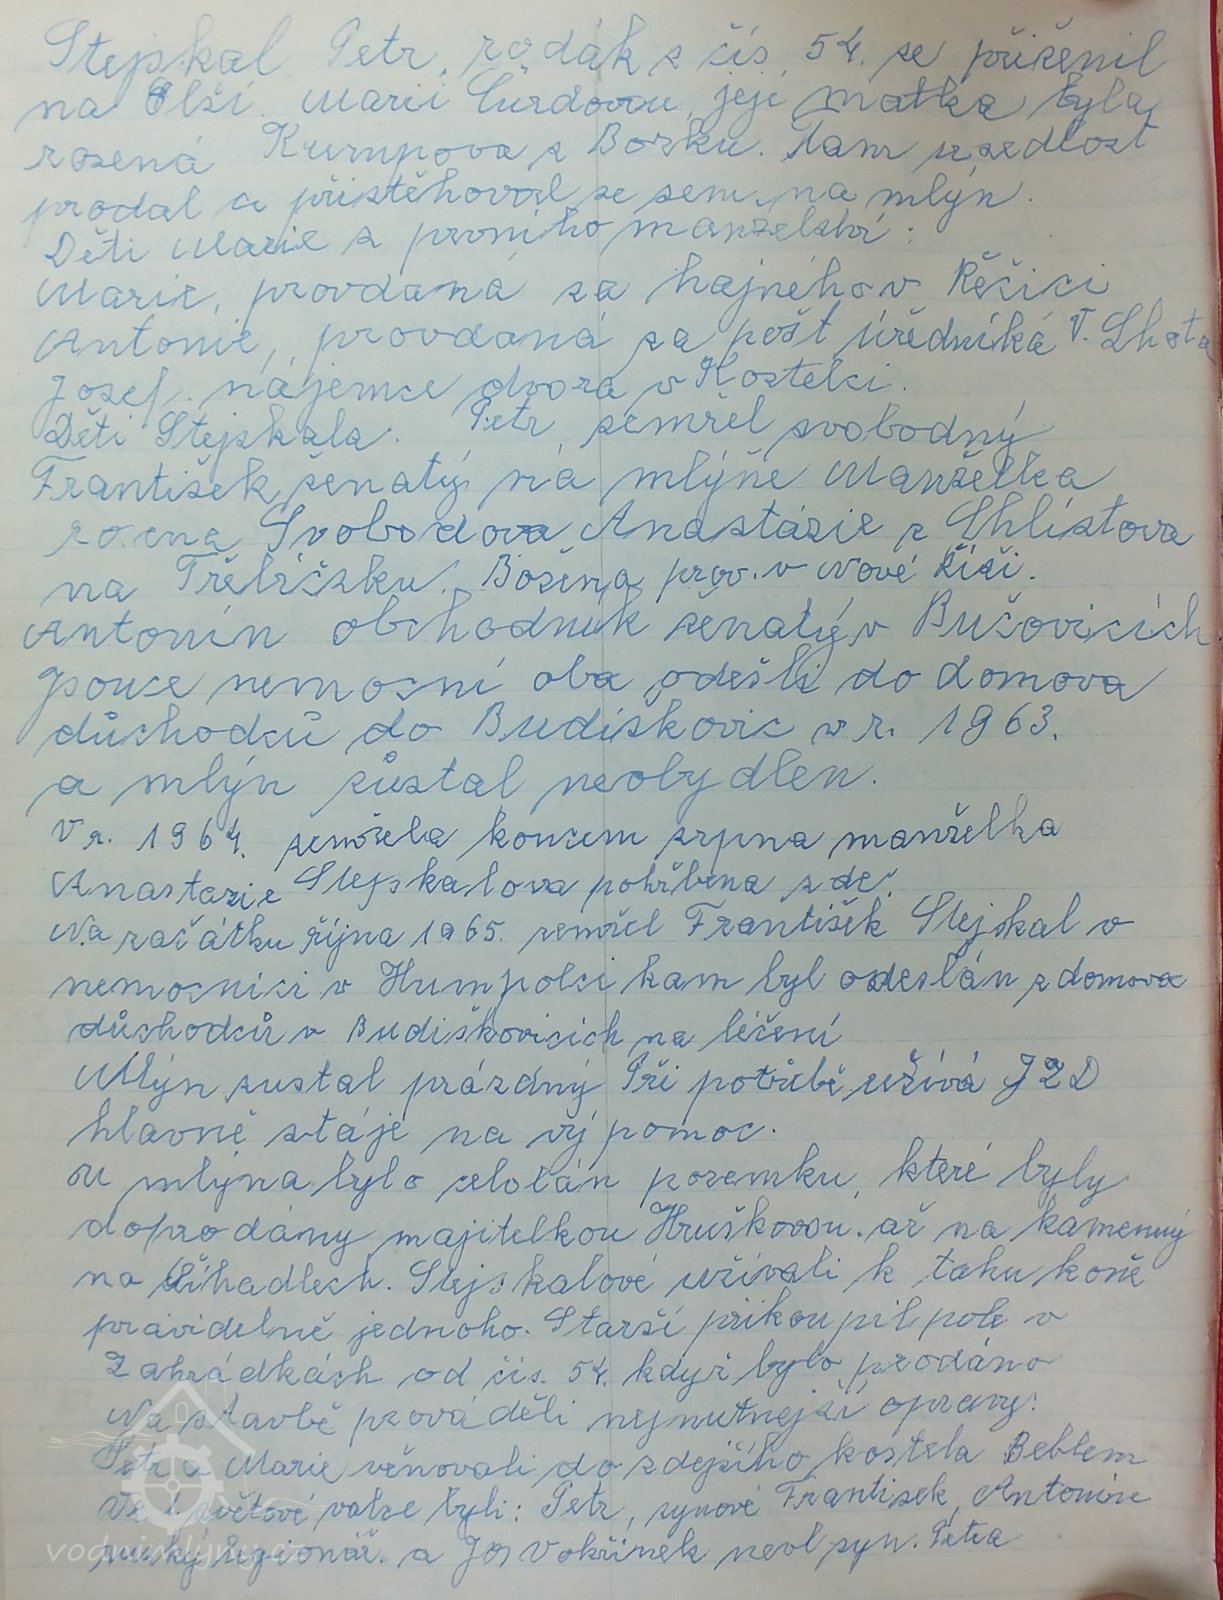 Stejskal Petr, rodák z čís. 54. se přiženil
na Olší. Marii Čurdovou, jeje matka byla
rozená Krumpova z Borku. Tam usedlost
prodal a přistěhoval se sem, na mlýn.
Děti Marie z prvního manželství:
Marie, provdaná za hajného v Řečici
Antonie, provdaná za pošt úředníká V. Lhota
Josef. nájemce dvora v Kostelci.
Děti Stejskala. Petr, zemřel svobodný
František, ženatý ná mlýňe Manželka
rozena Svobodova Anastázie z Chlístova
na Třebíčsku. Božena prov. v Nové Říši.
Antonín obchodník ženatý v Bučovicích.
Jsouce nemocní oba odešli do domova
důchodců do Budiškovic v r. 1963.
a mlýn zůstal neobydlen.
V r. 1964. zemřela koncem srpna manželka
Anastazie Stejskalova pohřbena zde.
Na začátku října 1965. zemřel František Stejskal v
nemocnici v Humpolci kam byl odeslán z domova
důchodců v Budiškovicích na léčení
Mlýn zustal prázdný Při potřebě užívá JZD
hlavně stáje na výpomoc.
U mlýna bylo celolán pozemku, které byly
doprodány majitelkou Hruškovou. až na kamenný
na Čihadlech. Stejskalové užívali k tahu koně
pravidelně jednoho. Starší přikoupil pole v
Zahrádkách od čís. 54. když bylo prodáno
Na stavbě prováděli nejnutnejší opravy.
Petr a Marie věnovali do zdejšího kostela Betlem
Ve 1. světové valce byli: Petr, synové František, Antonín
ruský legionář. a Jos Vokřínek nevl syn. Petra
vodnimlyny.cz